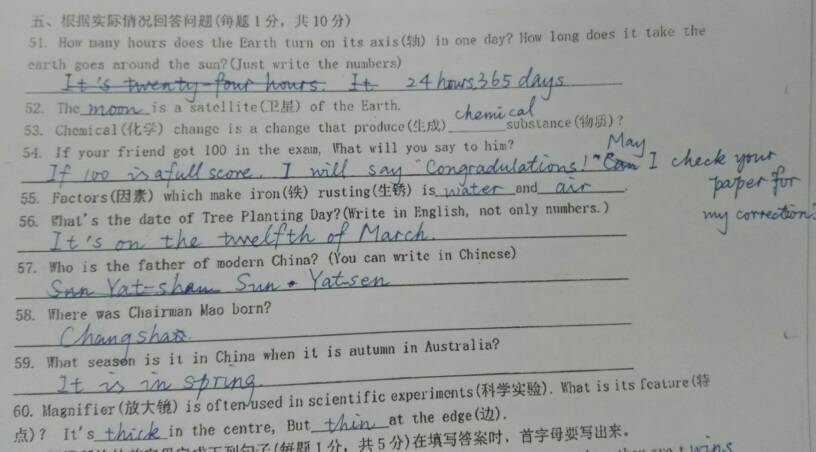 五、根据实际情况回答问题(每题1分，共10分)
51. How many hours does the Earth turn on its axis(轴) in one day? How long does it take the
earth goes around the sun?(Just write the numbers)
It's twenty-four hours. It 24 hours,365 days
52. The moon is a satellite(卫星) of the Earth.
53. Chemical(化学) change is a change that produce(生成) chemical substance(物质)?
54. If your friend got 100 in the exam, What will you say to him?
If 100 is a full score, I will say "Congradulations!" Can May I check your
paper for
my correction?
55. Factors(因素) which make iron(铁) rusting(生锈) is water and air.
56. What's the date of Tree Planting Day?(Write in English, not only numbers.)
It's on the twelfth of March.
57. Who is the father of modern China? (You can write in Chinese)
Yat-shan Sun · Yat-sen
58. Where was Chairman Mao born?
Changsha.
59. What season is it in China when it is autumn in Australia?
It is in spring.
60. Magnifier(放大镜) is often used in scientific experiments(科学实验). What is its feature(特
点)? It's thick in the centre, But thin at the edge(边).
下列句子(每题1分，共5分)在填写答案时，首字母要写出来。
wins